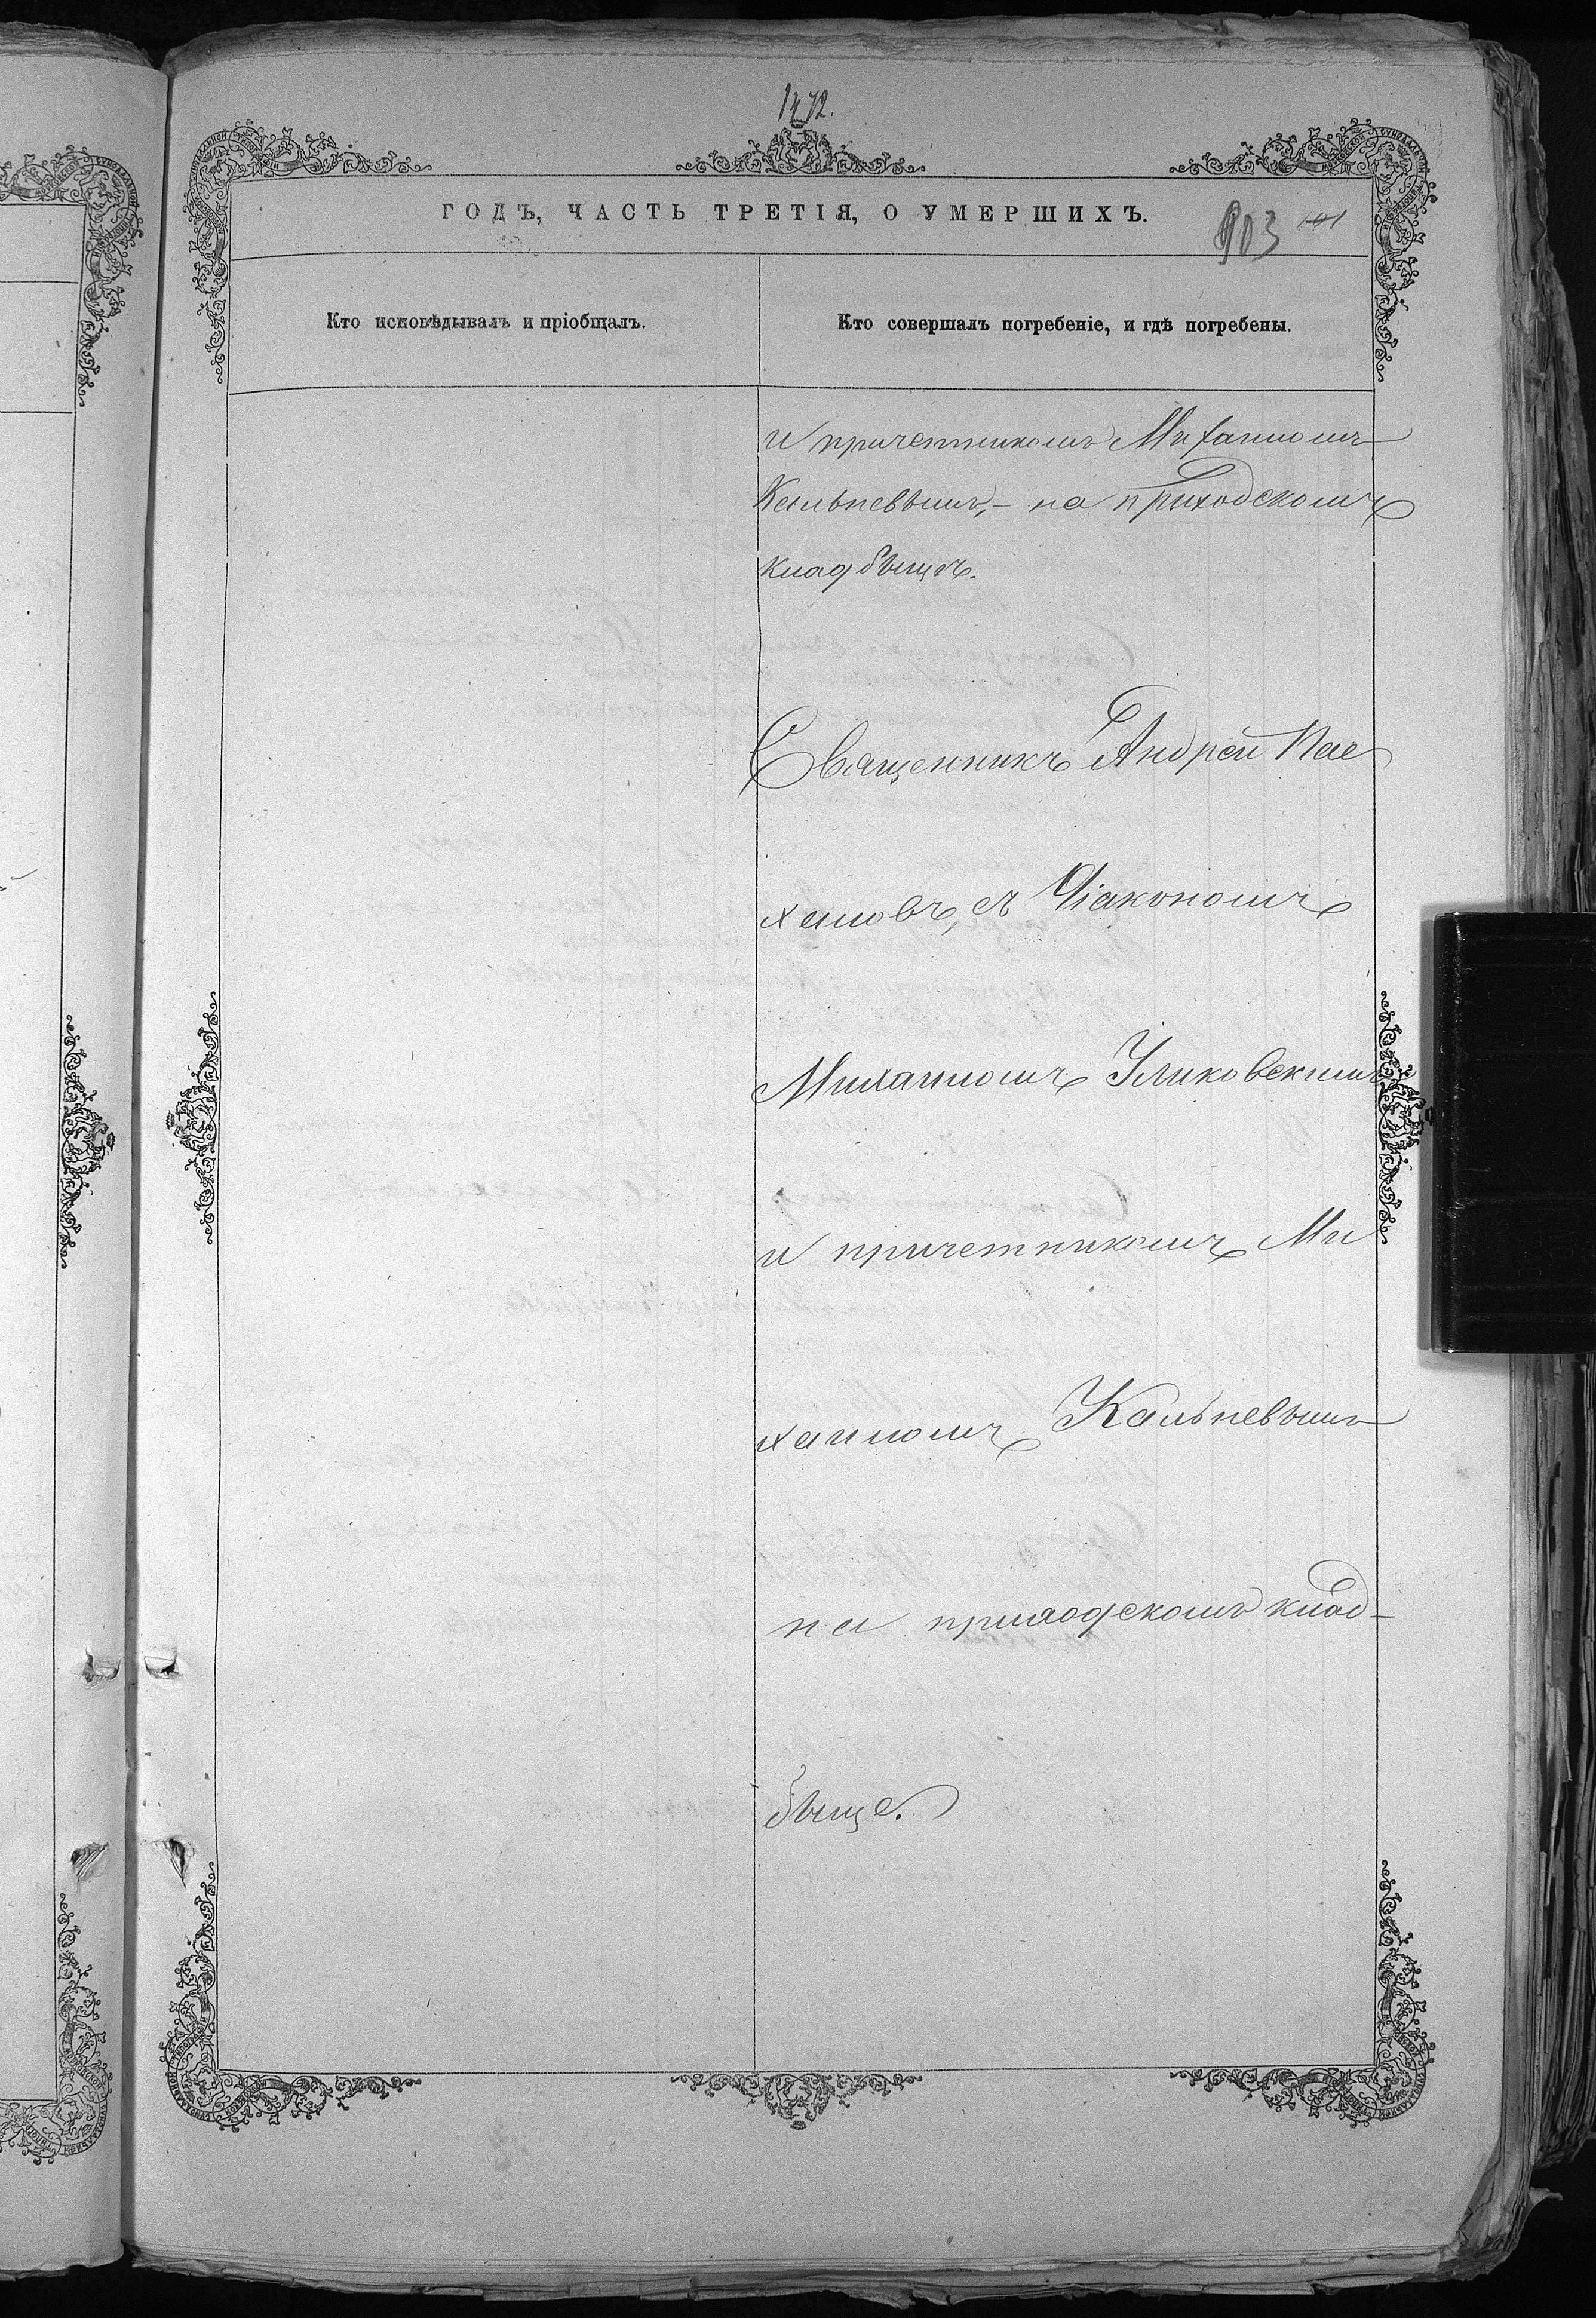 1472.
ГОДЪ, ЧАСТЬ ТРЕТІЯ, О УМЕРШИХЪ.
903
Кто исповѣдывалъ и пріобщалъ.
Кто совершалъ погребеніе, и гдѣ погребены.
и причетникомъ Михаиломъ
Кальневымъ,- на приходскомъ
кладбищѣ.
Священникъ Андрей Пас
халовъ, съ Діакономъ
Михаиломъ Уликовскимъ
и причетникомъ Ми
хаиломъ Кальневымъ
на приходскомъ клад-
бище.